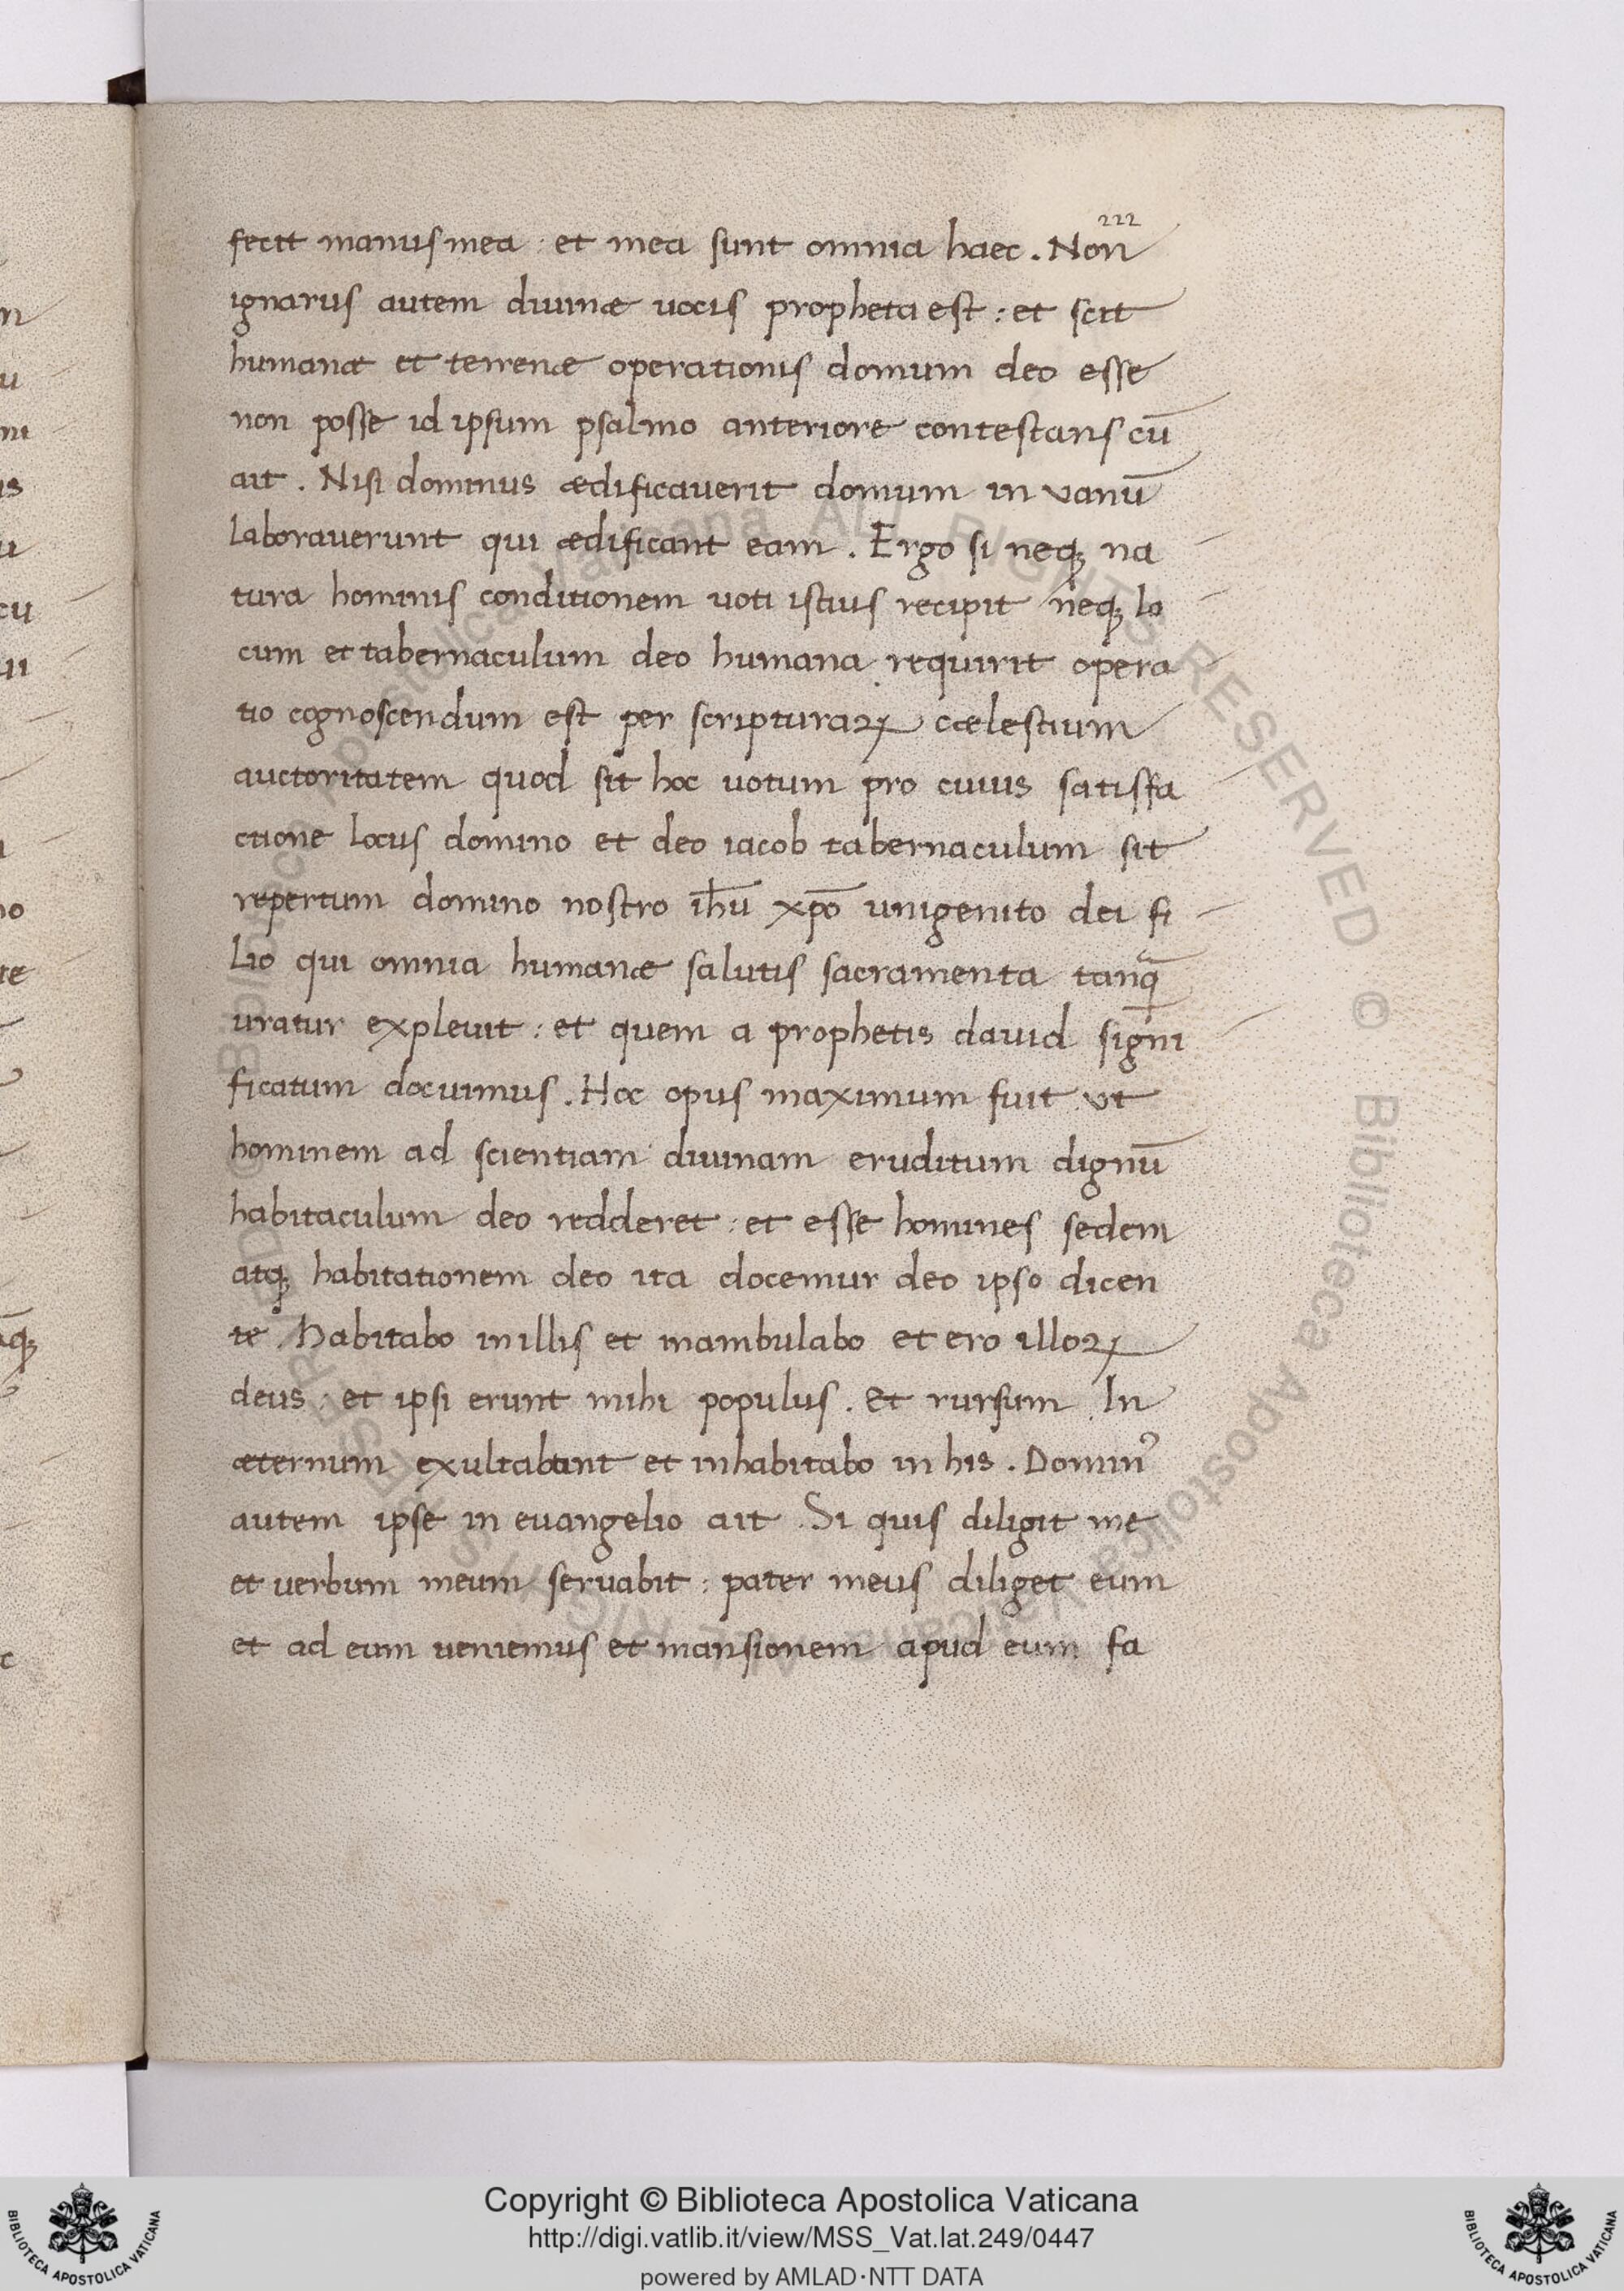 222
fecit manus mea : et mea sunt omnia haec . Non
ignarus autem diuinæ uocis propheta est : et scit
humanæ et terrenæ operationis domum deo esse
non posse id ipsum psalmo anteriore contestans cū
ait . Nisi dominus ædificauerit domum in vanū
laborauerunt qui ædificant eam . Ergo si neqꝫ na
tura hominis conditionem uoti istius recipit neqꝫ lo
cum et tabernaculum deo humana requirit opera
tio cognoscendum est per scripturaꝝ cælestium
auctoritatem quod sit hoc uotum pro cuius satisfa
ctione locus domino et deo iacob tabernaculum sit
repertum domino nostro ihū xpō unigenito dei fi
lio qui omnia humanæ salutis sacramenta tanq̄
uratur expleuit : et quem a prophetis dauid signi
ficatum docuimus . Hoc opus maximum fuit ut
hominem ad scientiam diuinam eruditum dignū
habitaculum deo redderet : et esse homines sedem
atqꝫ habitationem deo ita docemur deo ipso dicen
te . Habitabo in illis et inambulabo et ero illoꝝ
deus : et ipsi erunt mihi populus . Et rursum . In
æternum exultabunt et inhabitabo in his . Dominꝰ
autem ipse in euangelio ait . Si quis diligit me
et verbum meum seruabit : pater meus diliget eum
et ad eum ueniemus et mansionem apud eum fa
Copyright © Biblioteca Apostolica Vaticana
http://digi.vatlib.it/view/MSS_Vat.lat.249/0447
powered by AMLAD·NTT DATA
BIBLIOTECA APOSTOLICA VATICANA
BIBLIOTECA APOSTOLICA VATICANA